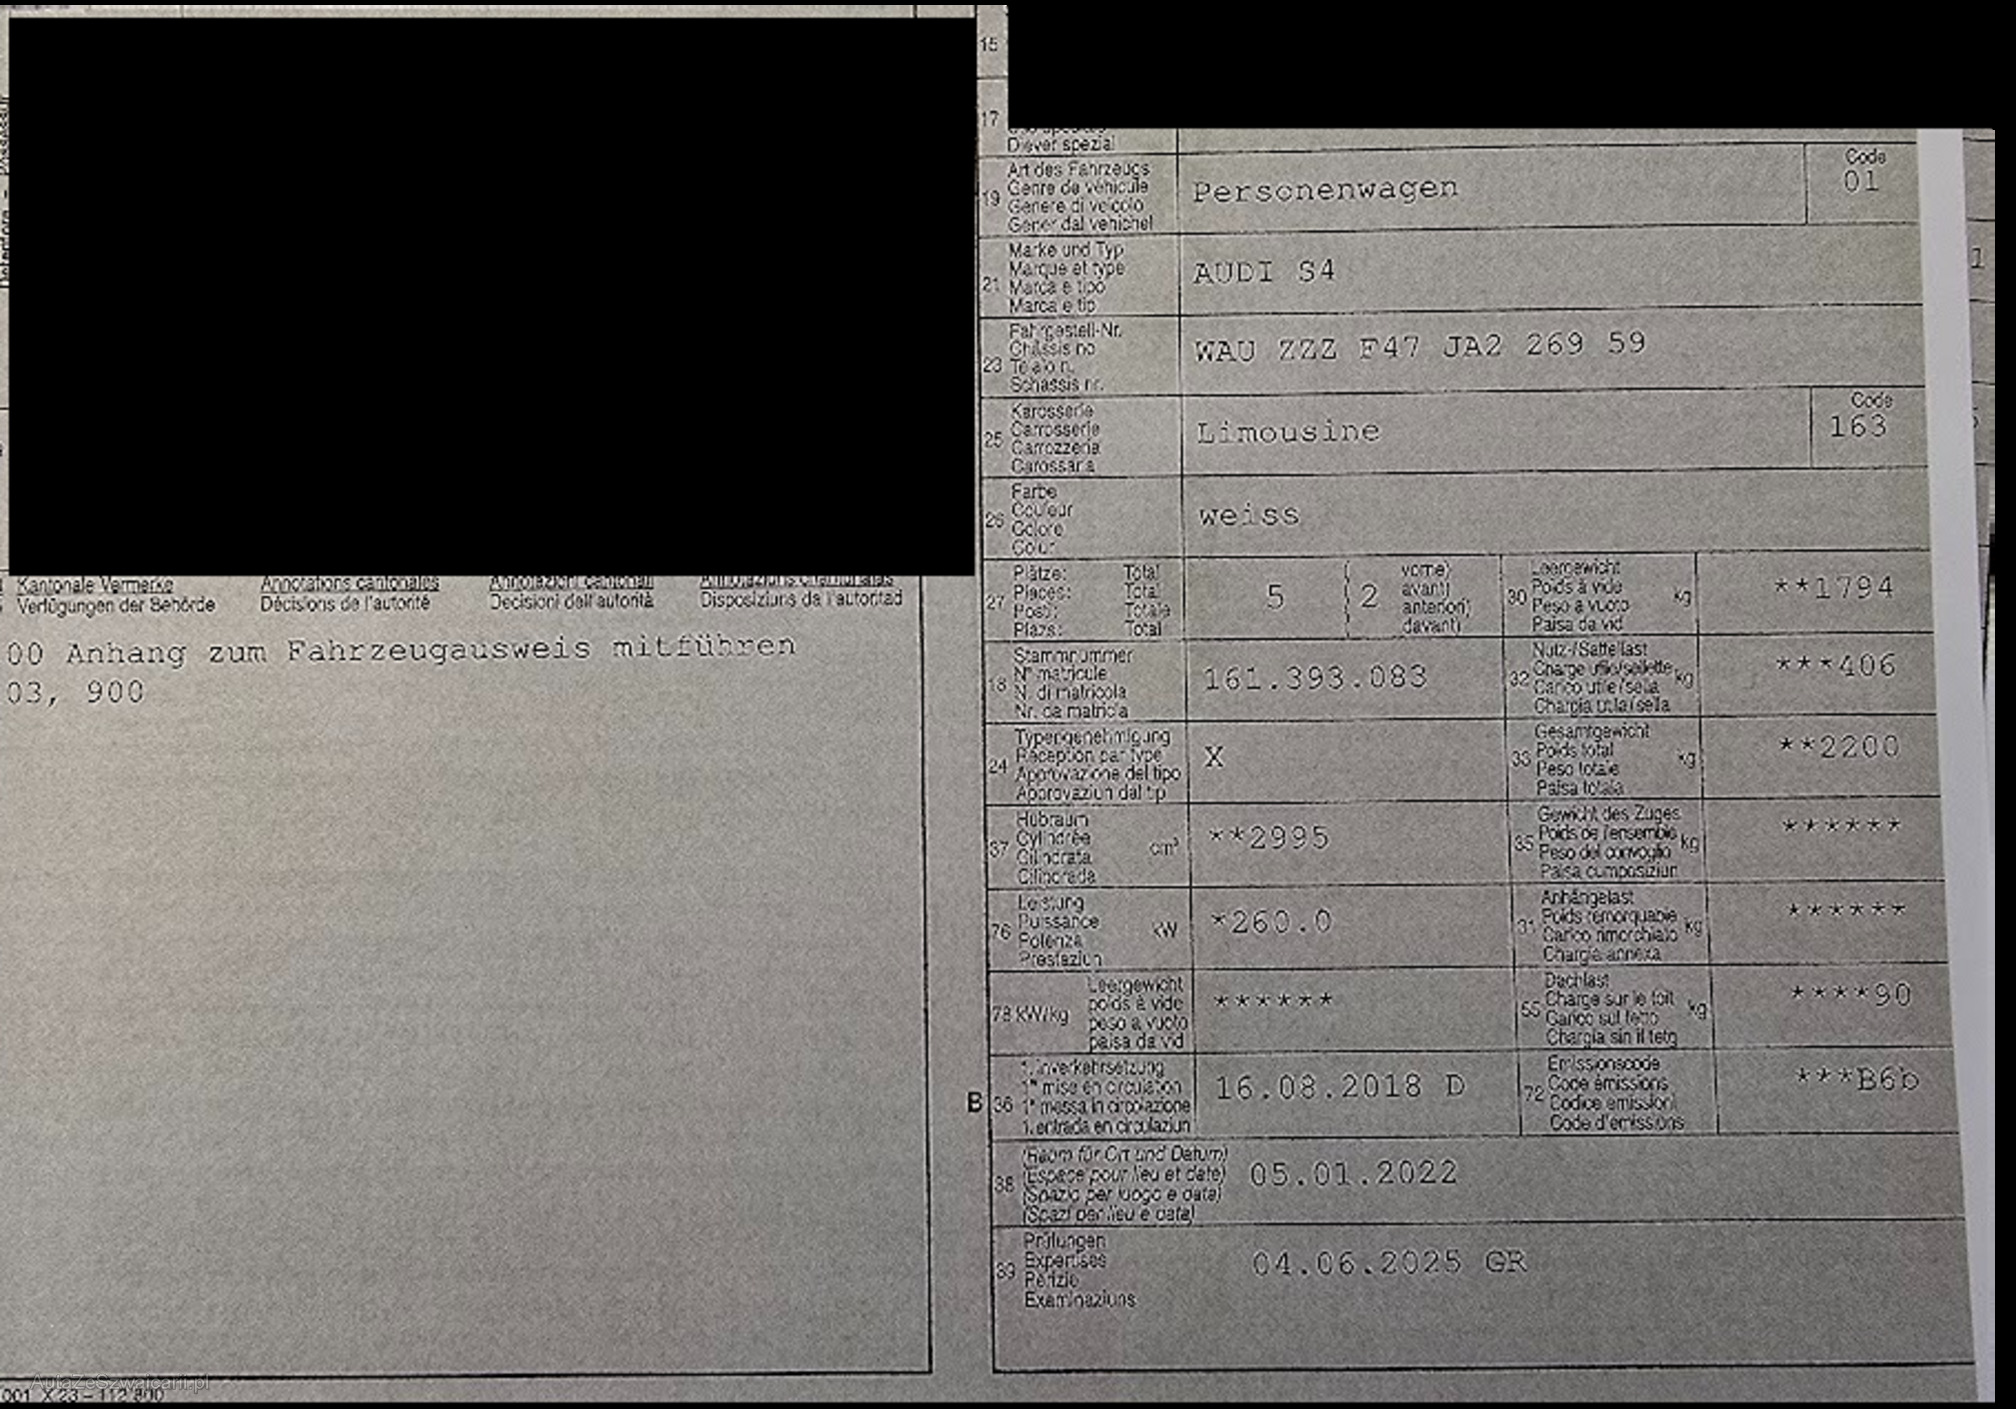 Kantonale Vermerke Annotations cantonales Annotazioni cantonali Annotaziuns chantunalas
Verfügungen der Behörde Décisions de l'autorité Decisioni dell'autorità Disposiziuns da l'autoritad
00 Anhang zum Fahrzeugausweis mitführen
03, 900
AutaZeSzwajcarii.pl
15
17
Diever spezial
19 Art des Fahrzeugs
Genre de véhicule
Genere di veicolo
Gener dal vehichel
Personenwagen
Code
01
21 Marke und Typ
Marque et type
Marca e tipo
Marca e tip
AUDI S4
23 Fahrgestell-Nr.
Châssis no
Telaio n.
Schassis nr.
WAU ZZZ F47 JA2 269 59
25 Karosserie
Carrosserie
Carrozzeria
Carossaria
Limousine
Code
163
26 Farbe
Couleur
Colore
Colur
weiss
27 Plätze: Total
Places: Total
Posti: Totale
Plazs: Total
5 ( 2 vorne)
avant)
anteriori)
davant)
30 Leergewicht
Poids à vide
Peso a vuoto
Paisa da vid
kg
**1794
18 Stammnummer
N° matricule
N. di matricola
Nr. da matricla
161.393.083
32 Nutz-/Sattellast
Charge utile/sellette
Carico utile/sella
Chargia utila/sella
kg
***406
24 Typengenehmigung
Réception par type
Approvazione del tipo
Approvaziun dal tip
X
33 Gesamtgewicht
Poids total
Peso totale
Paisa totala
kg
**2200
37 Hubraum
Cylindrée
Cilindrata
Cilindrada
cm³
**2995
35 Gewicht des Zuges
Poids de l'ensemble
Peso del convoglio
Paisa cumposiziun
kg
******
76 Leistung
Puissance
Potenza
Prestaziun
kW
*260.0
31 Anhängelast
Poids remorquable
Carico rimorchiato
Chargia annexa
kg
******
78 kW/kg
Leergewicht
poids à vide
peso a vuoto
paisa da vid
******
55 Dachlast
Charge sur le toit
Carico sul tetto
Chargia sin il tetg
kg
****90
B 36 1. Inverkehrsetzung
1re mise en circulation
1a messa in circolazione
1. entrada en circulaziun
16.08.2018 D
72 Emissionscode
Code émissions
Codice emissioni
Code d'emissiuns
***B6b
38 (Raum für Ort und Datum)
(Espace pour lieu et date)
(Spazio per luogo e data)
(Spazi per lieu e data)
05.01.2022
39 Prüfungen
Expertises
Perizie
Examinaziuns
04.06.2025 GR